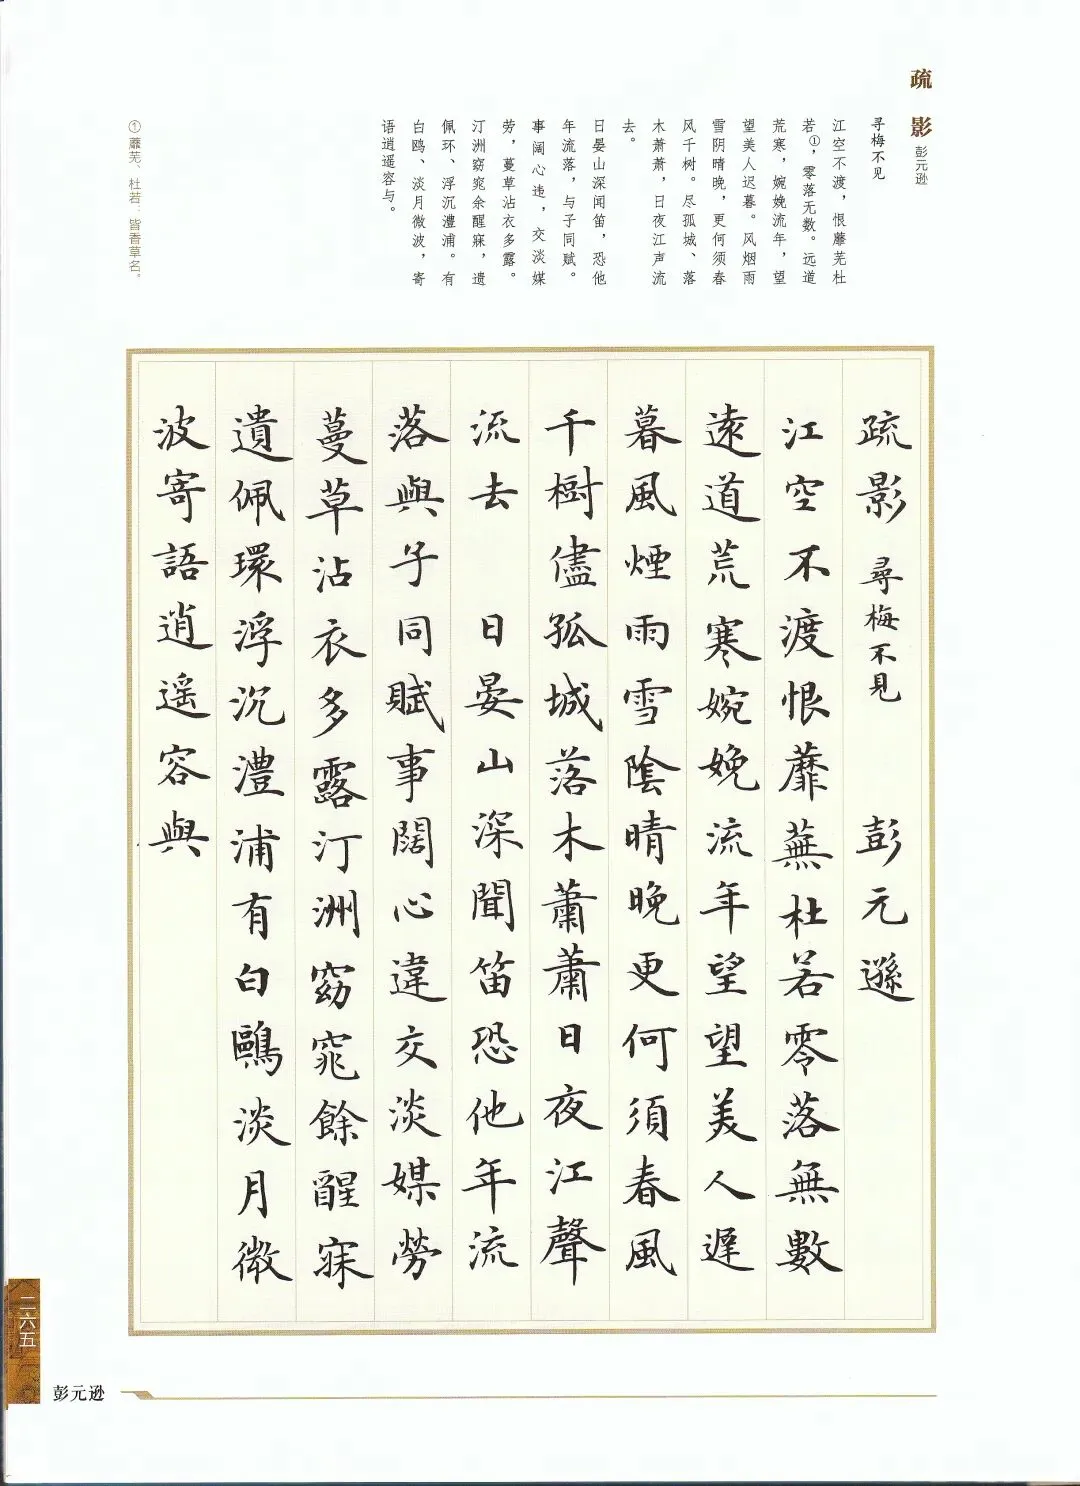 疏影
彭元逊
寻梅不见
江空不渡，恨蘼芜杜
若①，零落无数。远道
荒寒，婉娩流年，望
望美人迟暮。风烟雨
雪阴晴晚，更何须春
风千树。尽孤城、落
木萧萧，日夜江声流
去。
日晏山深闻笛，恐他
年流落，与子同赋。
事阔心违，交淡媒
劳，蔓草沾衣多露。
汀洲窈窕余醒寐，遗
佩环、浮沉澧浦。有
白鸥、淡月微波，寄
语逍遥容与。
①蘼芜、杜若：皆香草名。
疏影 尋梅不見 彭元遜
江空不渡恨蘼蕪杜若零落無數
遠道荒寒婉娩流年望望美人遲
暮風煙雨雪陰晴晚更何須春風
千樹儘孤城落木蕭蕭日夜江聲
流去 日晏山深聞笛恐他年流
落與子同賦事闊心違交淡媒勞
蔓草沾衣多露汀洲窈窕餘醒寐
遺佩環浮沉澧浦有白鷗淡月微
波寄語逍遥容與
二六五
彭元逊